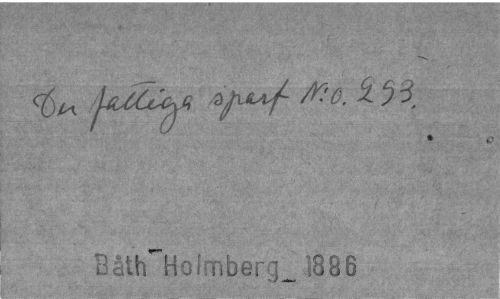 Den fattiga sparf N:o. 293.
Båth-Holmberg_ 1886